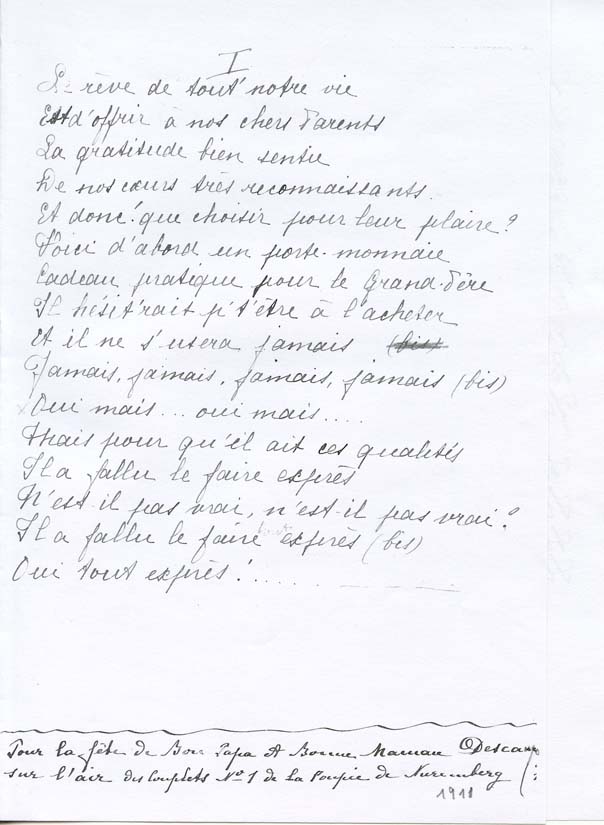 I
Le rêve de tout' notre vie
Est d'offrir à nos chers Parents
La gratitude bien sentie
De nos cœurs très reconnaissants.
Et donc! que choisir pour leur plaire?
Voici d'abord un porte-monnaie
Cadeau pratique pour le Grand-Père
Il hésit'rait p't'être à l'acheter
Et il ne s'usera jamais (bis)
Jamais, jamais, jamais, jamais (bis)
Oui mais... oui mais....
Mais pour qu'il ait ces qualités
Il a fallu le faire exprès
N'est-il pas vrai, n'est-il pas vrai?
Il a fallu le faire exprès (bis)
Oui tout exprès!......
Pour la fête de Bon Papa et Bonne Maman Descamps
sur l'air des Couplets No 1 de La Poupée de Nuremberg
1911